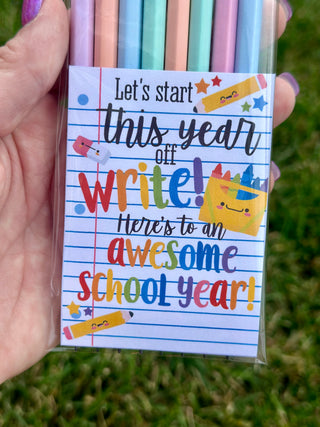 Let's start
this year
off
write!
Here's to an
awesome
school year!